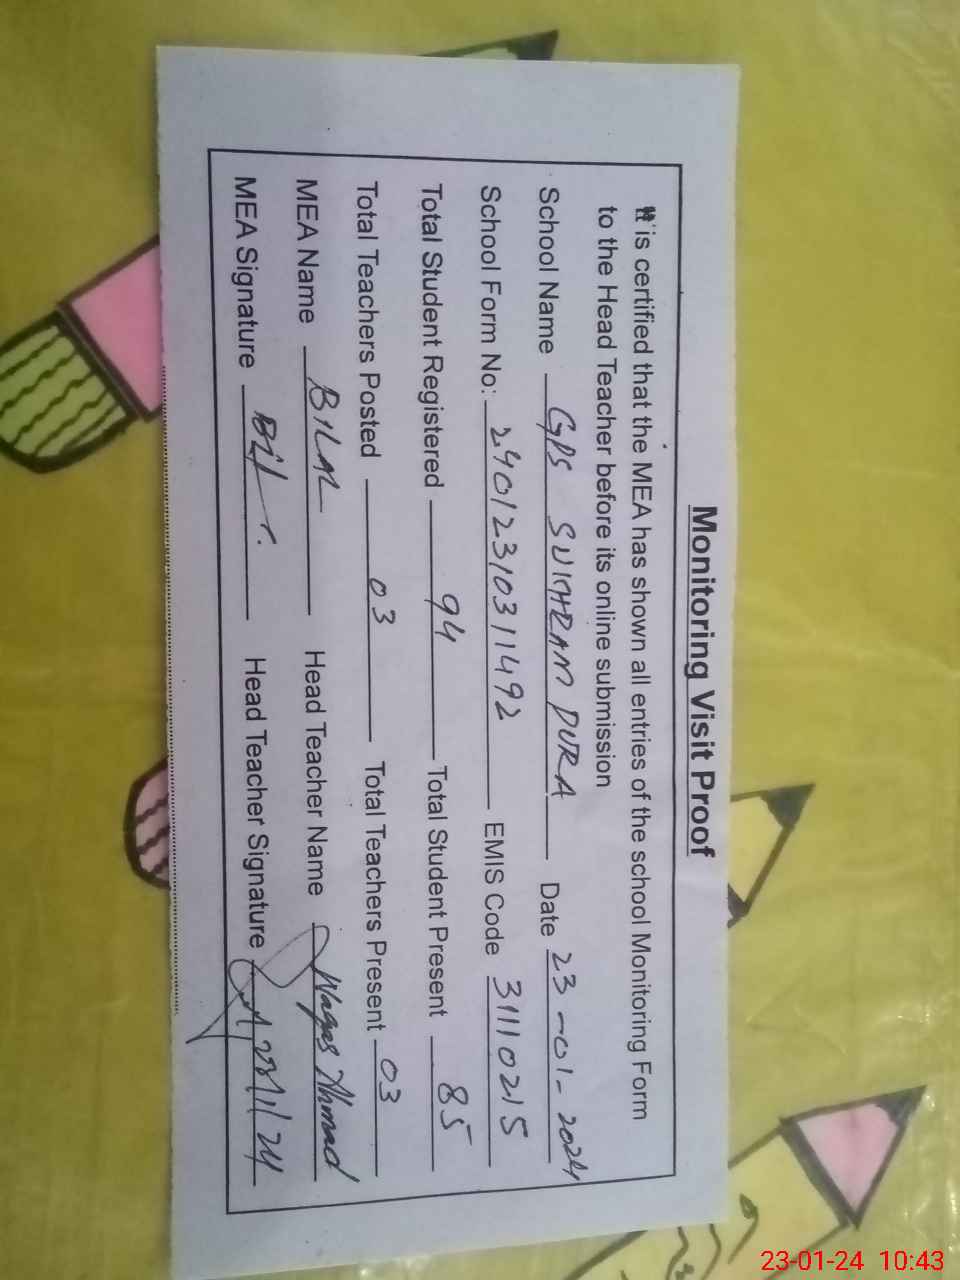 Monitoring Visit Proof
It is certified that the MEA has shown all entries of the school Monitoring Form
to the Head Teacher before its online submission
School Name GPS SUKHRAM PURA Date 23-01-2024
School Form No: 24012310311492 EMIS Code 31110215
Total Student Registered 94 Total Student Present 85
Total Teachers Posted 03 Total Teachers Present 03
MEA Name BILAL Head Teacher Name Waqas Ahmad
MEA Signature Head Teacher Signature
23-01-24 10:43